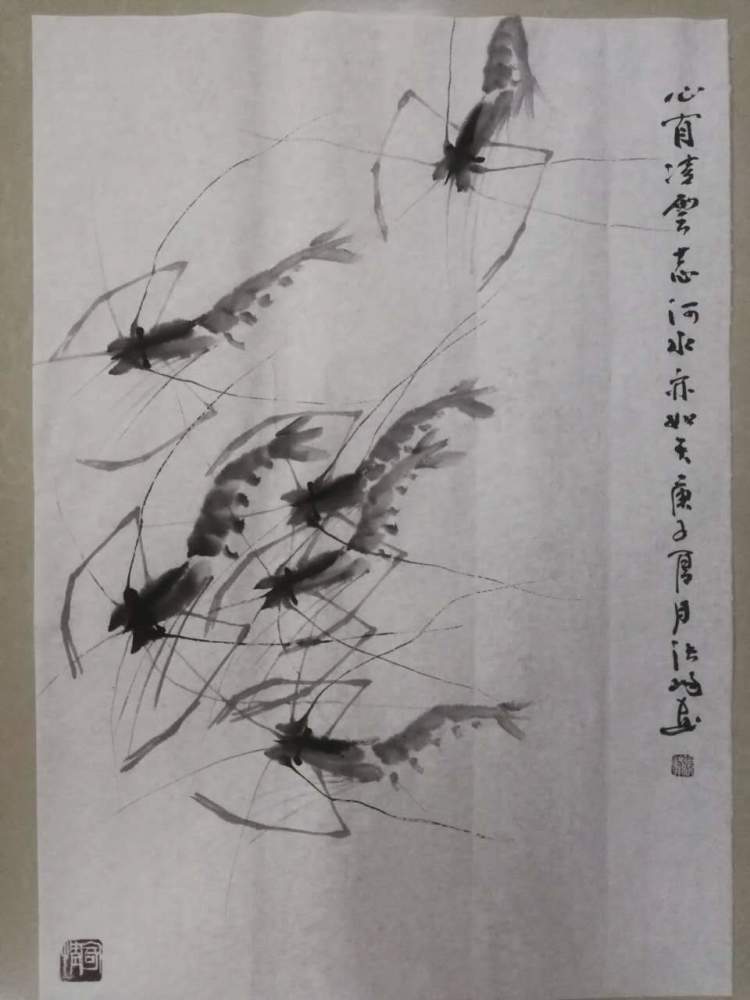 心有凌雲志河水亦如天庚子夏月画
寄情